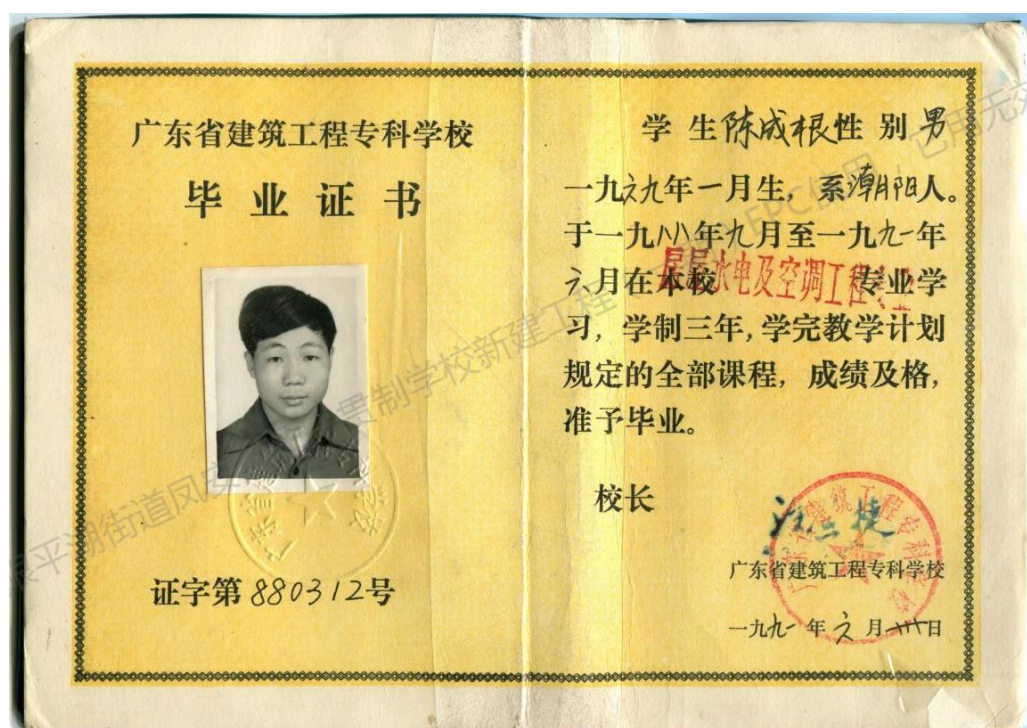 广东省建筑工程专科学校
毕业证书
证字第880312号
学生陈成根性别男
一九六九年一月生，系潮阳人。
于一九八八年九月至一九九一年
六月在本校房屋水电及空调工程专业学
习，学制三年，学完教学计划
规定的全部课程，成绩及格，
准予毕业。
校长
广东省建筑工程专科学校
一九九一年六月 日